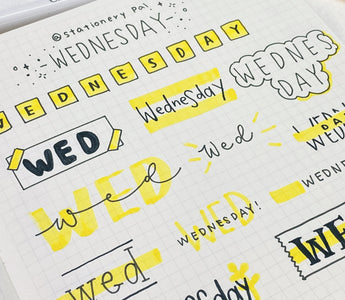 @stationery pal
WEDNESDAY
WEDNESDAY
WEDNES
DAY
Wednesday
WED
Wed
wed
WED
WED
WEDNESDAY!
WEDNESDAY
wed
Wednesday
WE